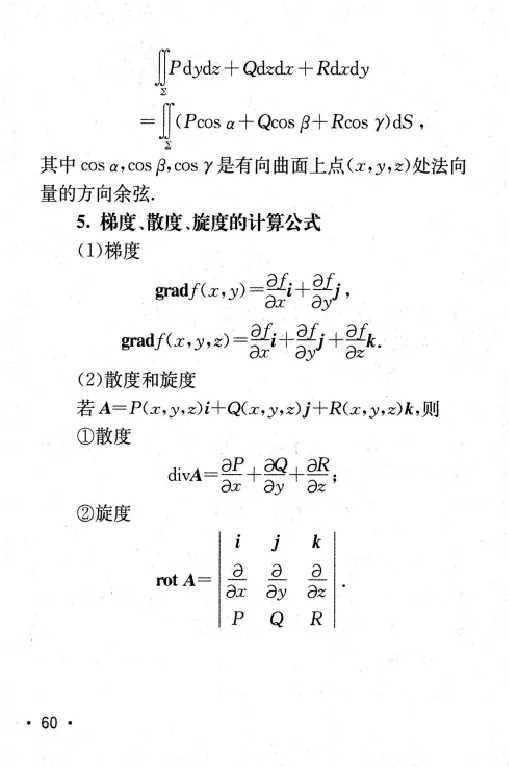 ∬_Σ Pdydz+Qdzdx+Rdxdy
=∬_Σ (Pcos α+Qcos β+Rcos γ)dS，
其中 cos α，cos β，cos γ 是有向曲面上点(x，y，z)处法向
量的方向余弦.
5. 梯度、散度、旋度的计算公式
(1)梯度
gradf(x，y)=∂f/∂x i+∂f/∂y j，
gradf(x，y，z)=∂f/∂x i+∂f/∂y j+∂f/∂z k.
(2)散度和旋度
若 A=P(x，y，z)i+Q(x，y，z)j+R(x，y，z)k，则
①散度
divA=∂P/∂x+∂Q/∂y+∂R/∂z；
②旋度
rot A=| i j k |
| ∂/∂x ∂/∂y ∂/∂z | .
| P Q R |
· 60 ·